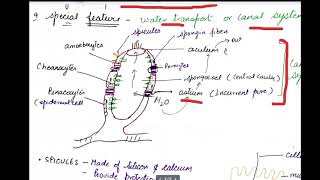 9. special feature - water transport or canal system
spicules
spongin fiber
amoebocytes
osculum
out
Choanocytes
Porocytes
spongocoel (central cavity)
Pinacocytes
(epidermal cell)
ostium (incurrent pore)
H₂O
• SPICULES - Made of Silicon & calcium
Provide protection